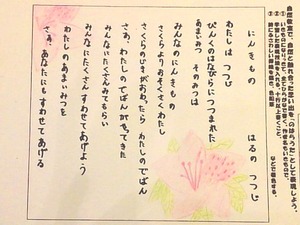 自然教室で、自然と触れ合った思い出を「のはらうた」として表現しよう。
にんきもの　はるの　つつじ
わたしは　つつじ
ぴんくのはなびらにつつまれた
あまぁいみつは
みんなのにんきもの
さくらよりおそくさくわたし
さくらのじきがおわったら　わたしのでばん
さぁ、わたしのでばんがやってきた
みんなにたくさんみてもらい
みんなにたくさんすわせてあげよう
わたしのあまぁいみつを
さぁ、あなたにもすわせてあげる